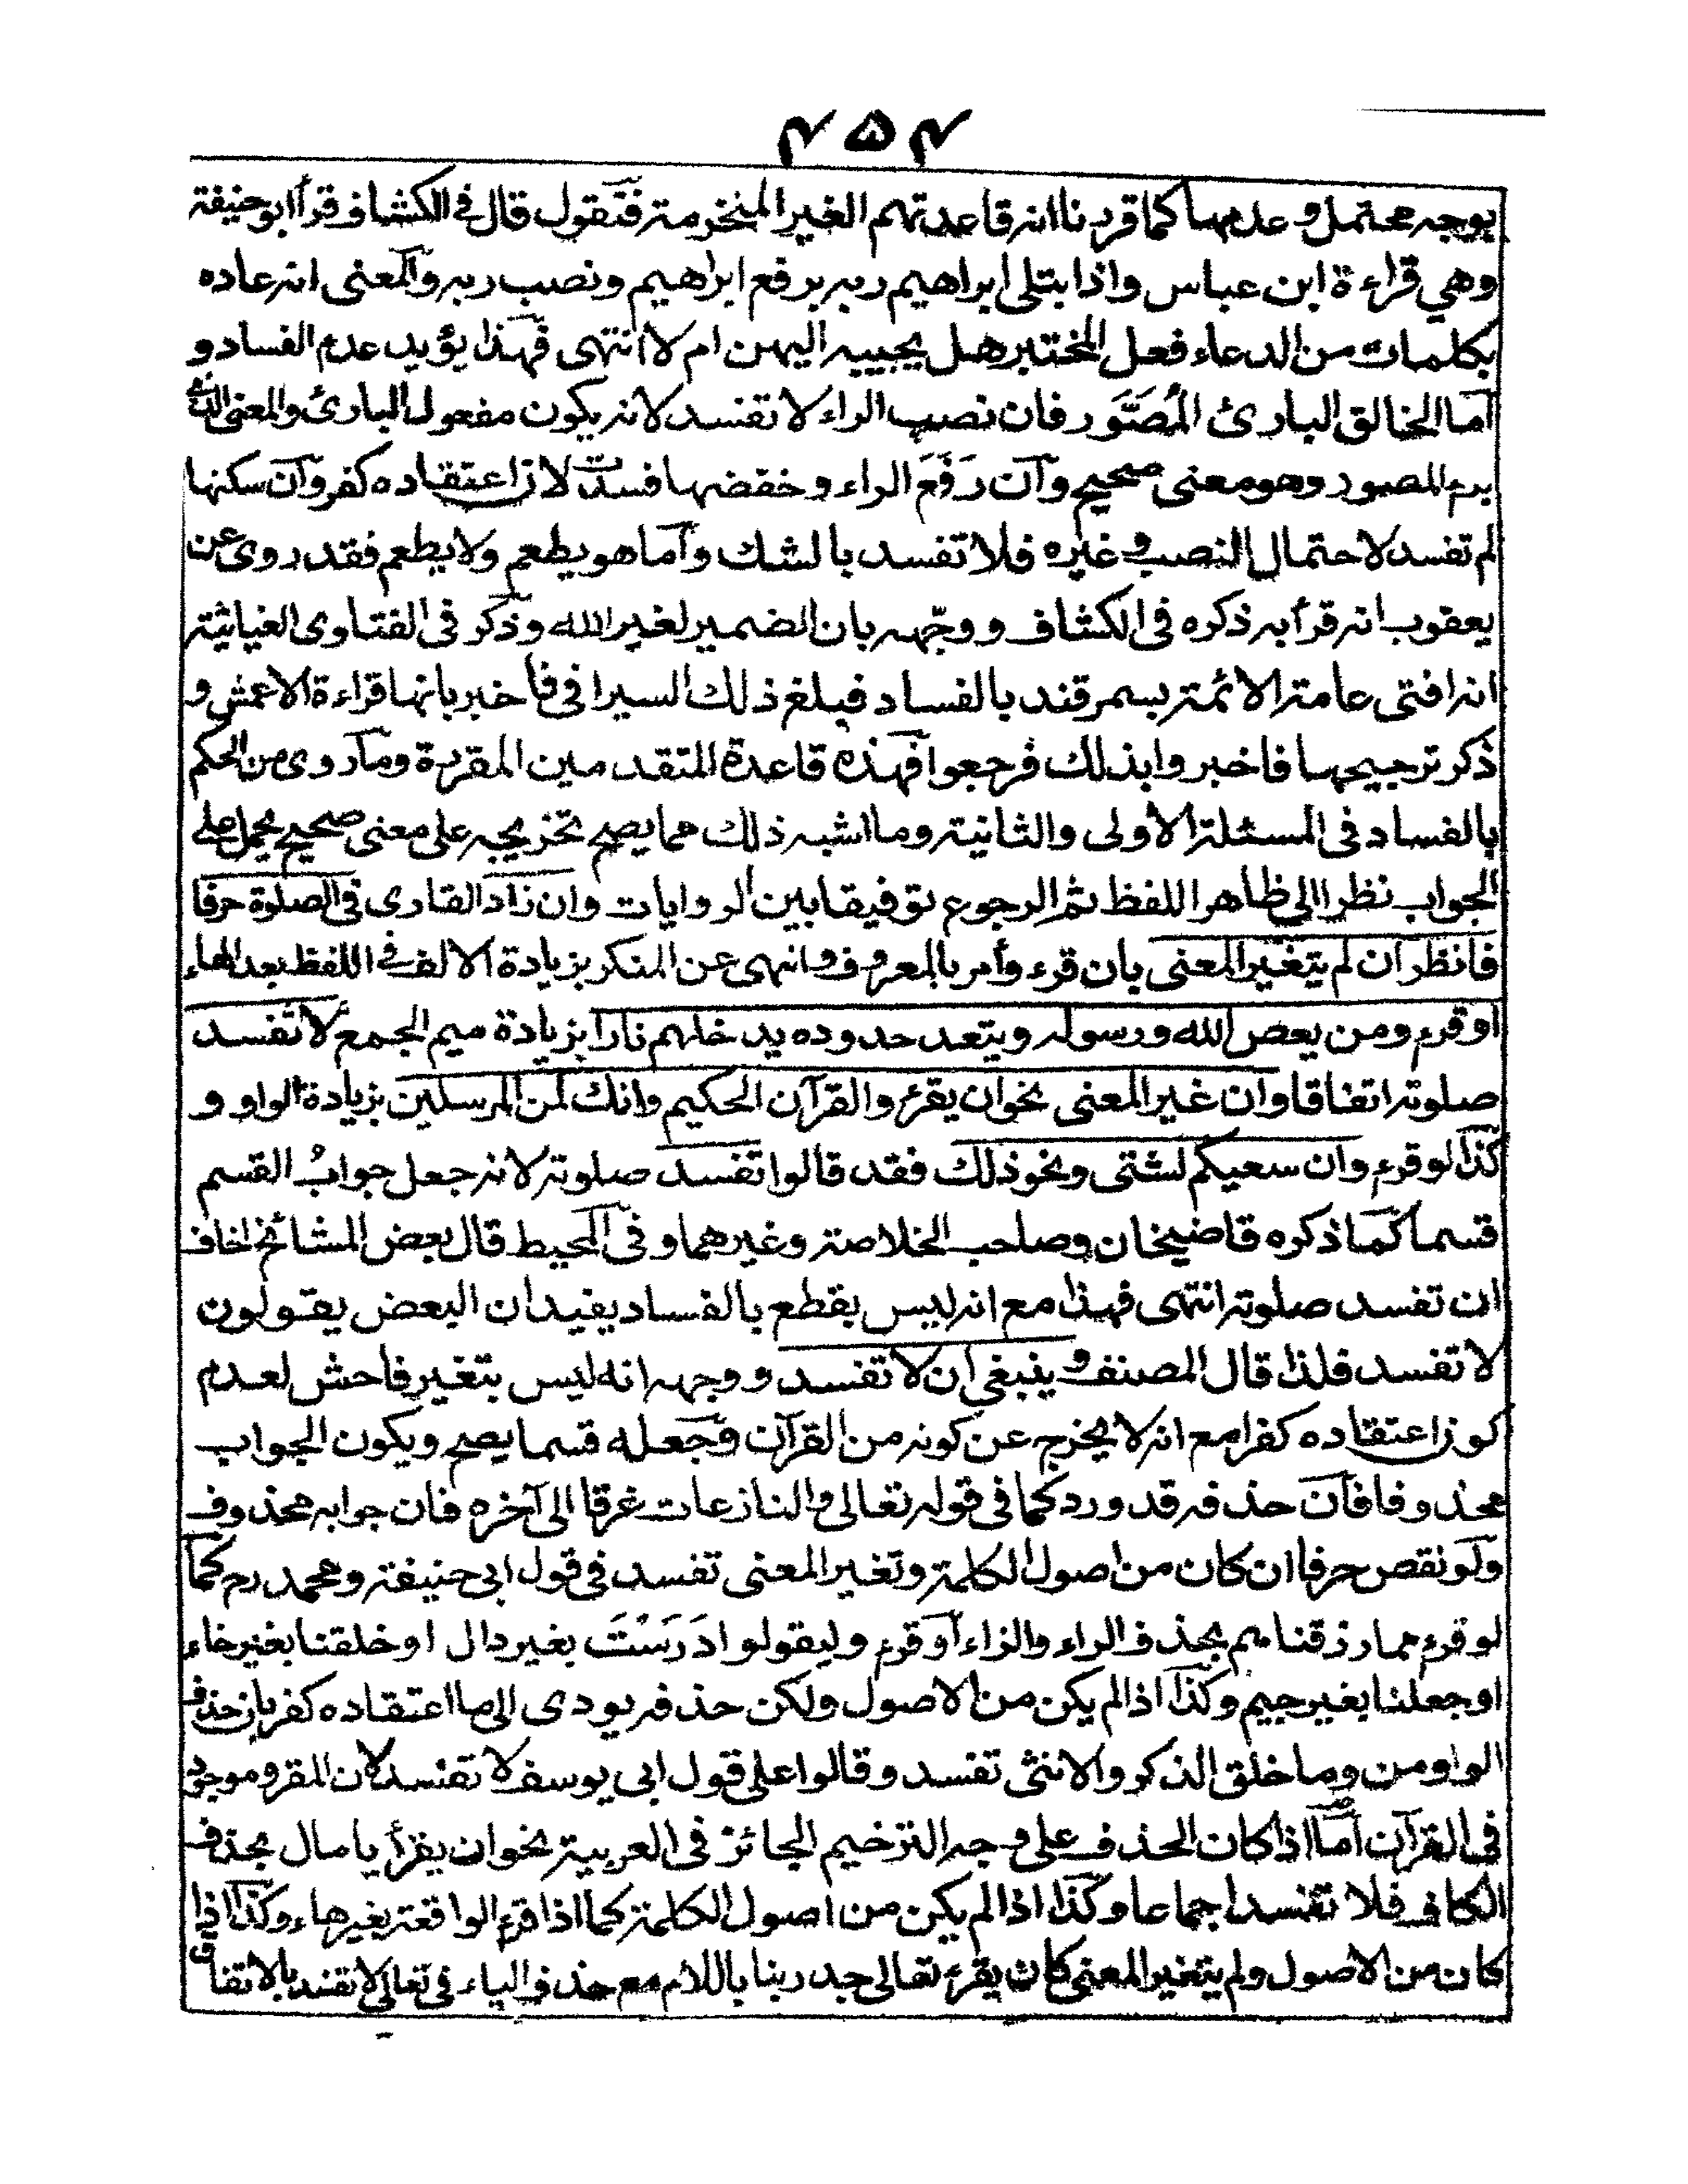 ۴۵۴
بوجه محتمل وعدمها كما قررنا انه قاعدتهم الغير المنخرمة فنقول قال في الكشاف قرأ ابو حنيفة
وهي قراءة ابن عباس واذا بتلى ابراهيم ربه برفع ابراهيم ونصب ربه والمعنى انه عاده
بكلمات من الدعاء فعل المختبر هل يجيبه اليهن ام لا انتهى فهذا يؤيد عدم الفساد و
اما الخالق البارئ المُصَوَّر فان نصب الراء لا تفسد لانه يكون مفعول البارئ والمعنى الذي
برء المصور وهو معنى صحيح وان رَفَعَ الراء وخفضها فسدت لان اعتقاده كفر وان سكنها
لم تفسد لاحتمال النصب وغيره فلا تفسد بالشك واما هو يطعم ولا يطعم فقد روى عن
يعقوب انه قرأ به ذكره فى الكشاف ووجّهه بان الضمير لغير الله وذكر فى الفتاوى الغياثية
انه افتى عامة الائمة بسمرقند بالفساد فبلغ ذلك السيرافى فاخبر بانها قراءة الاعمش و
ذكر ترجيحها فاخبروا بذلك فرجعوا فهذه قاعدة المتقدمين المقررة وما روى من الحكم
بالفساد فى المسئلة الاولى والثانية وما اشبه ذلك مما يصح تخريجه على معنى صحيح يحمل على
الجواب نظرا الى ظاهر اللفظ ثم الرجوع توفيقا بين الروايات وان زاد القارى فى الصلوة حرفا
فانظر ان لم يتغير المعنى بان قرء وأمر بالمعروف وانهى عن المنكر بزيادة الالف في اللفظ بعد الهاء
او قرء ومن يعص الله ورسوله ويتعد حدوده يدخلهم نارا بزيادة ميم الجمع لا تفسد
صلوته اتفاقا وان غير المعنى نحو ان يقرء والقرآن الحكيم وانك لمن المرسلين بزيادة الواو و
كذا لو قرء وان سعيكم لشتى ونحو ذلك فقد قالوا تفسد صلوته لانه جعل جوابُ القسم
قسما كما ذكره قاضيخان وصاحب الخلاصة وغيرهما وفى المحيط قال بعض المشائخ اخاف
ان تفسد صلوته انتهى فهذا مع انه ليس بقطع بالفساد يفيد ان البعض يقولون
لا تفسد فلذا قال المصنف وينبغى ان لا تفسد ووجهه انه ليس بتغير فاحش لعدم
كون اعتقاده كفرا مع انه لا يخرج عن كونه من القرآن وجعله قسما يصح ويكون الجواب
محذوفا فان حذفه قد ورد كما فى قوله تعالى والنازعات غرقا الى آخره فان جوابه محذوف
ولو نقص حرفا ان كان من اصول الكلمة وتغير المعنى تفسد فى قول ابى حنيفة ومحمد رح كما
لو قرء مما رزقناهم بحذف الراء والزاء او قرء وليقولوا دَرَسْتَ بغير دال او خلقنا بغير خاء
او جعلنا بغير جيم وكذا اذا لم يكن من الاصول ولكن حذفه يودى الى ما اعتقاده كفر بان حذف
الواو من وما خلق الذكر والانثى تفسد وقالوا على قول ابى يوسف لا تفسد لان المقرو موجود
فى القرآن اما اذا كان الحذف على وجه الترخيم الجائز فى العربية نحو ان يقرأ يا مال بحذف
الكاف فلا تفسد اجماعا وكذا اذا لم يكن من اصول الكلمة كما اذا قرء الواقعة بغير هاء وكذا اذا
كان من الاصول ولم يتغير المعنى كان يقرء تعالى جد ربنا باللام مع حذف الياء فى تعالى لا تفسد بالاتفاق